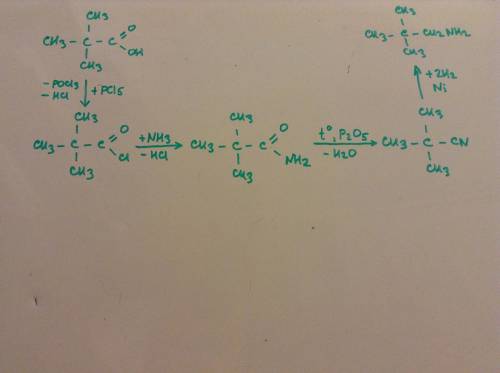 CH3
CH3 - C - C O
OH
CH3
- POCl3
- HCl
+ PCl5
CH3
CH3 - C - C O
Cl
CH3
+NH3
- HCl
CH3
CH3 - C - C O
NH2
CH3
t°, P2O5
- H2O
CH3
CH3 - C - CN
CH3
+2H2
Ni
CH3
CH3 - C - CH2NH2
CH3